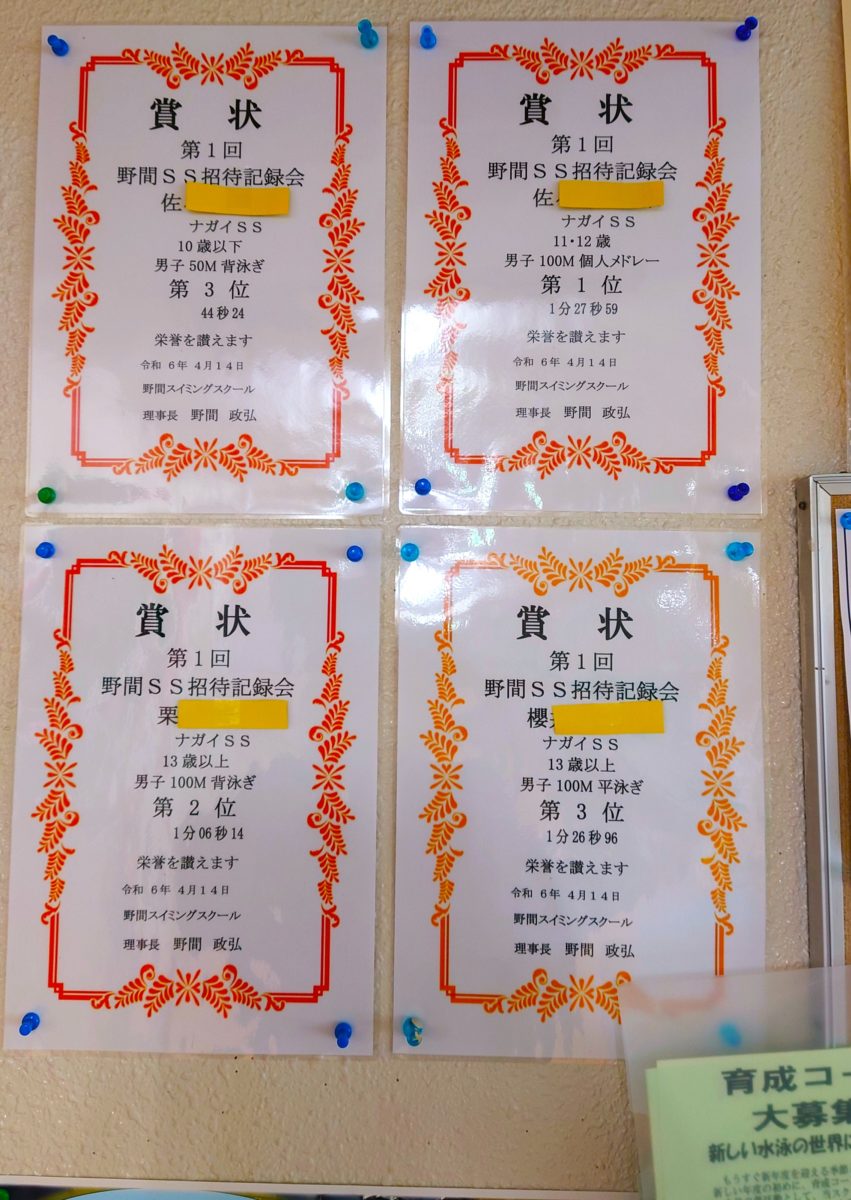 賞 状
第1回
野間SS招待記録会
佐
ナガイSS
10歳以下
男子50M背泳ぎ
第 3 位
44秒24
栄誉を讃えます
令和 6年 4月14日
野間スイミングスクール
理事長 野間 政弘
賞 状
第1回
野間SS招待記録会
佐
ナガイSS
11・12歳
男子100M個人メドレー
第 1 位
1分27秒59
栄誉を讃えます
令和 6年 4月14日
野間スイミングスクール
理事長 野間 政弘
賞 状
第1回
野間SS招待記録会
栗
ナガイSS
13歳以上
男子100M背泳ぎ
第 2 位
1分06秒14
栄誉を讃えます
令和 6年 4月14日
野間スイミングスクール
理事長 野間 政弘
賞 状
第1回
野間SS招待記録会
櫻
ナガイSS
13歳以上
男子100M平泳ぎ
第 3 位
1分26秒96
栄誉を讃えます
令和 6年 4月14日
野間スイミングスクール
理事長 野間 政弘
育成コー
大募集
新しい水泳の世界に
もうすぐ新年度を迎える季節
新しい年度の初めに、育成コー